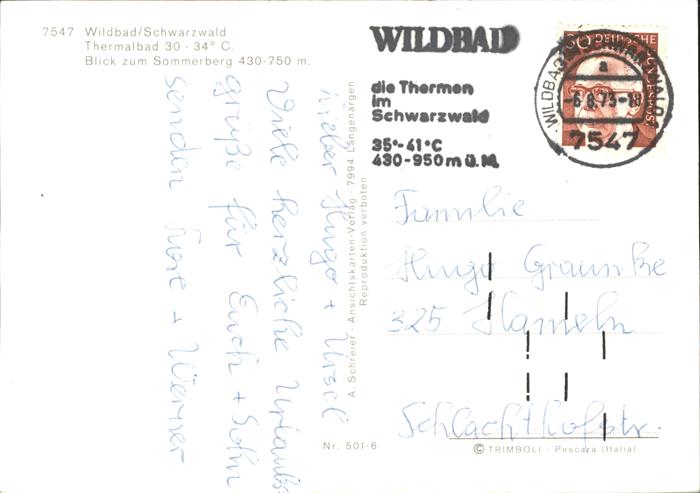 7547 Wildbad/Schwarzwald
Thermalbad 30 - 34° C.
Blick zum Sommerberg 430-750 m.
WILDBAD
die Thermen
im
Schwarzwald
35°-41°C
430-950m ü.M.
DEUTSCHE
WILDBAD
a
-6.8.73-18
7547
Lieber Hugo + Ursel
Viele herzliche Urlaubs-
grüße für Euch + Sohn
senden + Werner
A. Schreier - Ansichtskarten-Verlag - 7994 Langenargen
Reproduktion verboten
Familie
Hugo Graunke
325 Hameln
Schlachthofstr.
Nr. 501-6
© TRIMBOLI - Pescara (Italia)